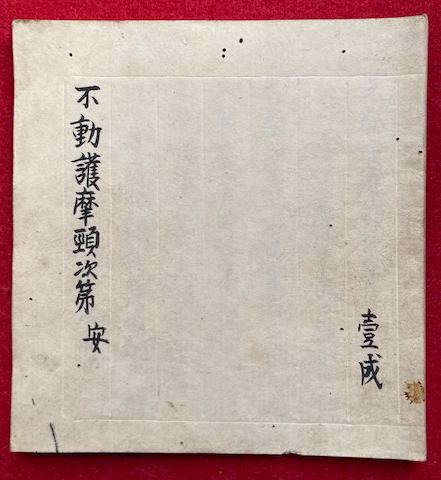 壹成
不動護摩頸次第 安